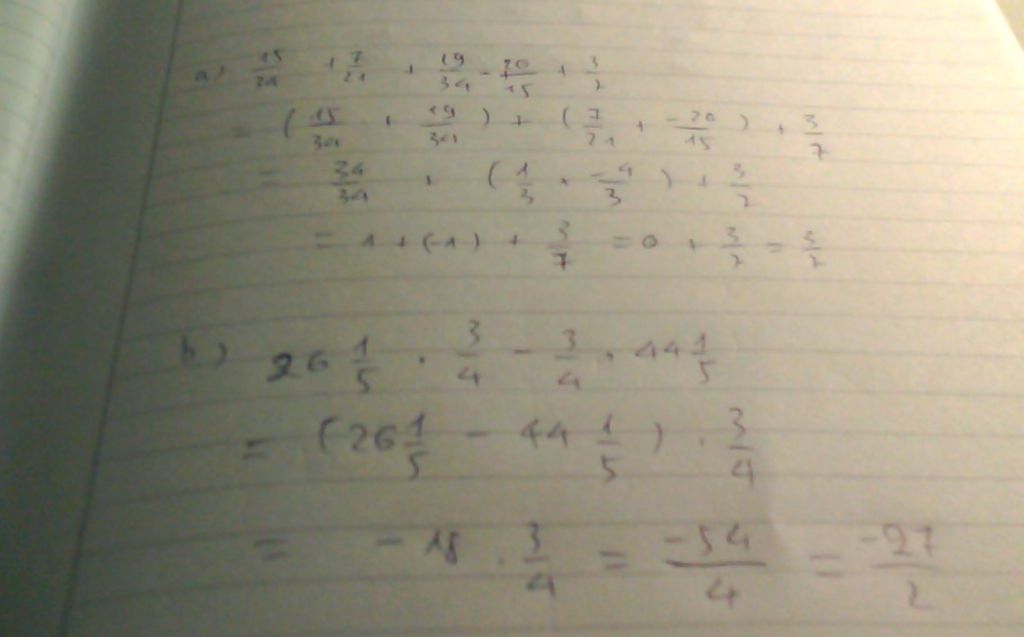 a) 15/34 + 7/21 + 19/34 - 20/15 + 3/7
= (15/34 + 19/34) + (7/21 + -20/15) + 3/7
= 34/34 + (1/3 + -4/3) + 3/7
= 1 + (-1) + 3/7 = 0 + 3/7 = 3/7
b) 26 1/5 . 3/4 - 3/4 . 44 1/5
= (26 1/5 - 44 1/5) . 3/4
= -18 . 3/4 = -54/4 = -27/2